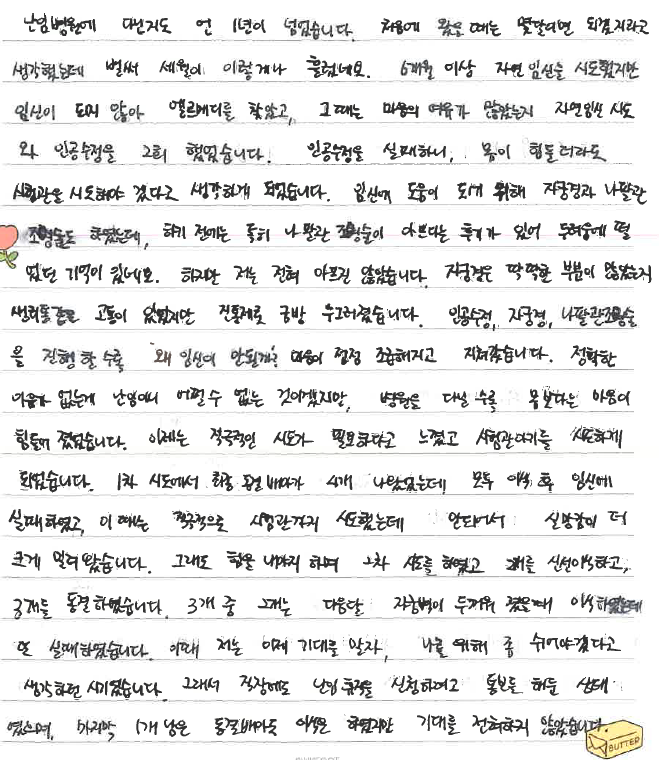 난임병원에 다닌지도 언 1년이 넘었습니다. 처음에 왔을 때는 몇달이면 되겠지라고
생각했는데 벌써 세월이 이렇게나 흘렀네요. 6개월 이상 자연임신을 시도했지만
임신이 되지 않아 엘르메디를 찾았고, 그때는 마음의 여유가 많았는지 자연임신 시도
와 인공수정을 2회 했었습니다. 인공수정을 실패하니, 몸이 힘들더라도
시험관을 시도해야 겠다고 생각하게 되었습니다. 임신에 도움이 되기 위해 자궁경과 나팔관
조영술도 하였는데, 하기 전에는 특히 나팔관 조영술이 아프다는 후기가 있어 두려움에 떨
었던 기억이 있네요. 하지만 저는 전혀 아프진 않았습니다. 자궁경은 딱딱한 부분이 많았는지
생리통같은 고통이 있었지만 진통제로 금방 수그러졌습니다. 인공수정, 자궁경, 나팔관조영술
을 진행할수록 '왜 임신이 안될까?' 마음이 점점 조급해지고 지쳐갔습니다. 정확한
이유가 없는게 난임이니 어쩔 수 없는 것이겠지만, 병원을 다닐수록 몸보다는 마음이
힘들어 졌었습니다. 이제는 적극적인 시도가 필요하다고 느꼈고 시험관아기를 시도하게
되었습니다. 1차 시도에서 최종 동결배아가 4개 나왔었는데, 모두 이식 후 임신에
실패하였고, 이 때는 적극적으로 시험관까지 시도했는데 안되어서 실망감이 더
크게 밀려 왔습니다. 그래도 힘을 내야지 하며 2차 시도를 하였고 2개를 신선이식하고,
3개를 동결하였습니다. 3개 중 2개는 다음달 자궁벽이 두꺼워 졌을때 이식하였는데
또 실패하였습니다. 이때 저는 이제 기대를 말자, 나를 위해 좀 쉬어야겠다고
생각하던 시기였습니다. 그래서 직장에도 난임휴직을 신청하려고 통보를 해둔 상태
였으며, 마지막 1개 남은 동결배아도 이식은 하였지만 기대를 전혀하지 않았습니다.
BUTTER